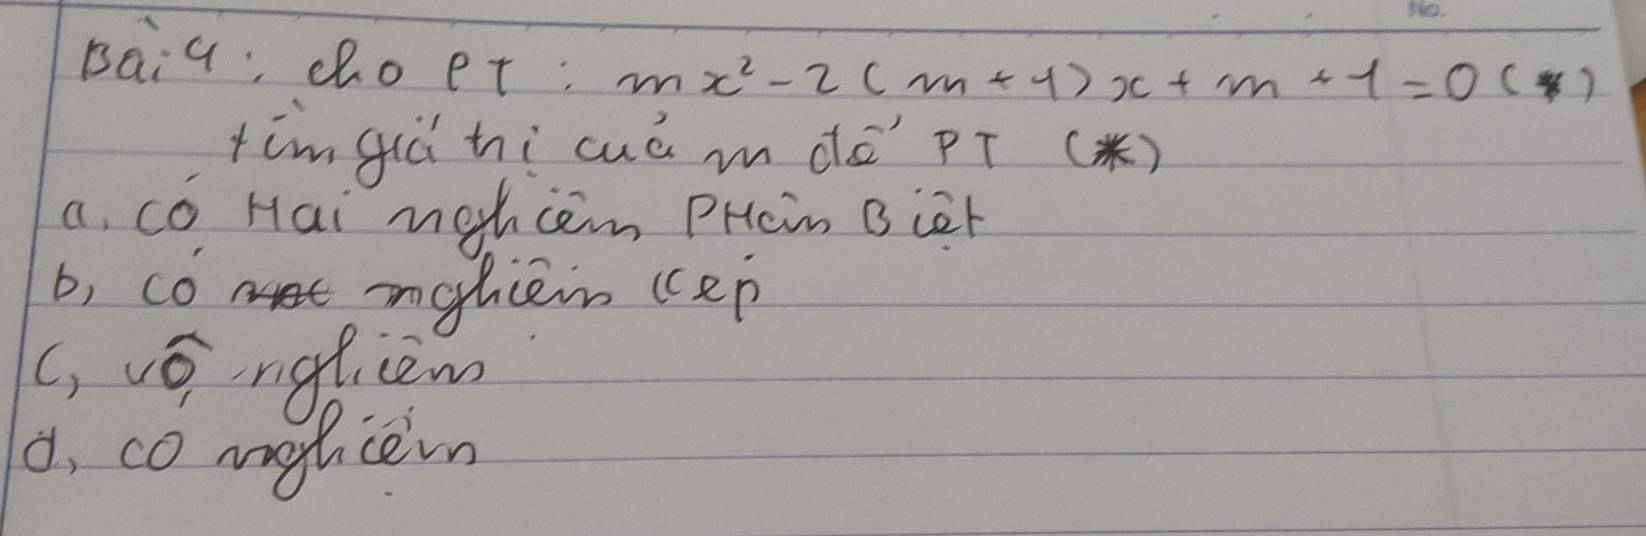 No.
Bài 4: cho PT: mx² - 2(m + 1)x + m + 1 = 0 (*)
tìm giá trị của m để PT (*)
a, có Hai nghiệm PHân Biệt
b, có nghiệm kép
c, vô nghiệm
d, có nghiệm